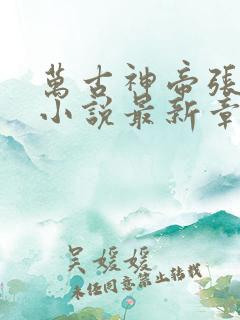 萬古神帝張
小說最新章
吳媛媛
未經同意禁止轉載